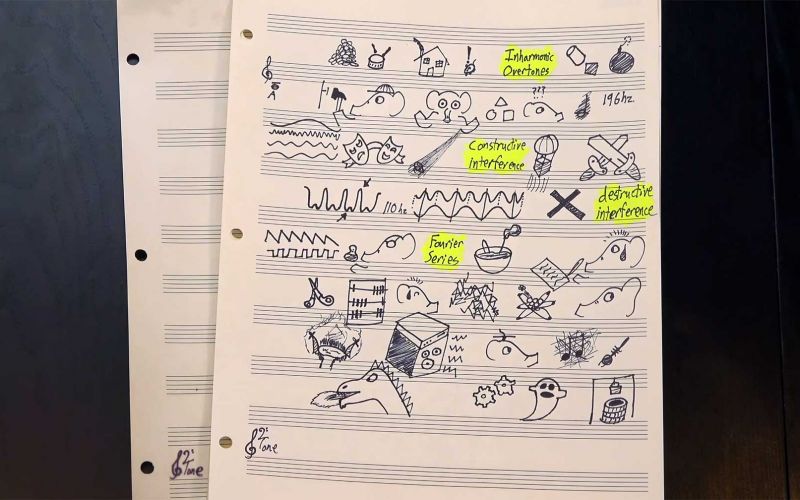 Inharmonic
Overtones
???
196hz
Constructive
interference
110hz
destructive
interference
Fourier
Series
Tone
Tone